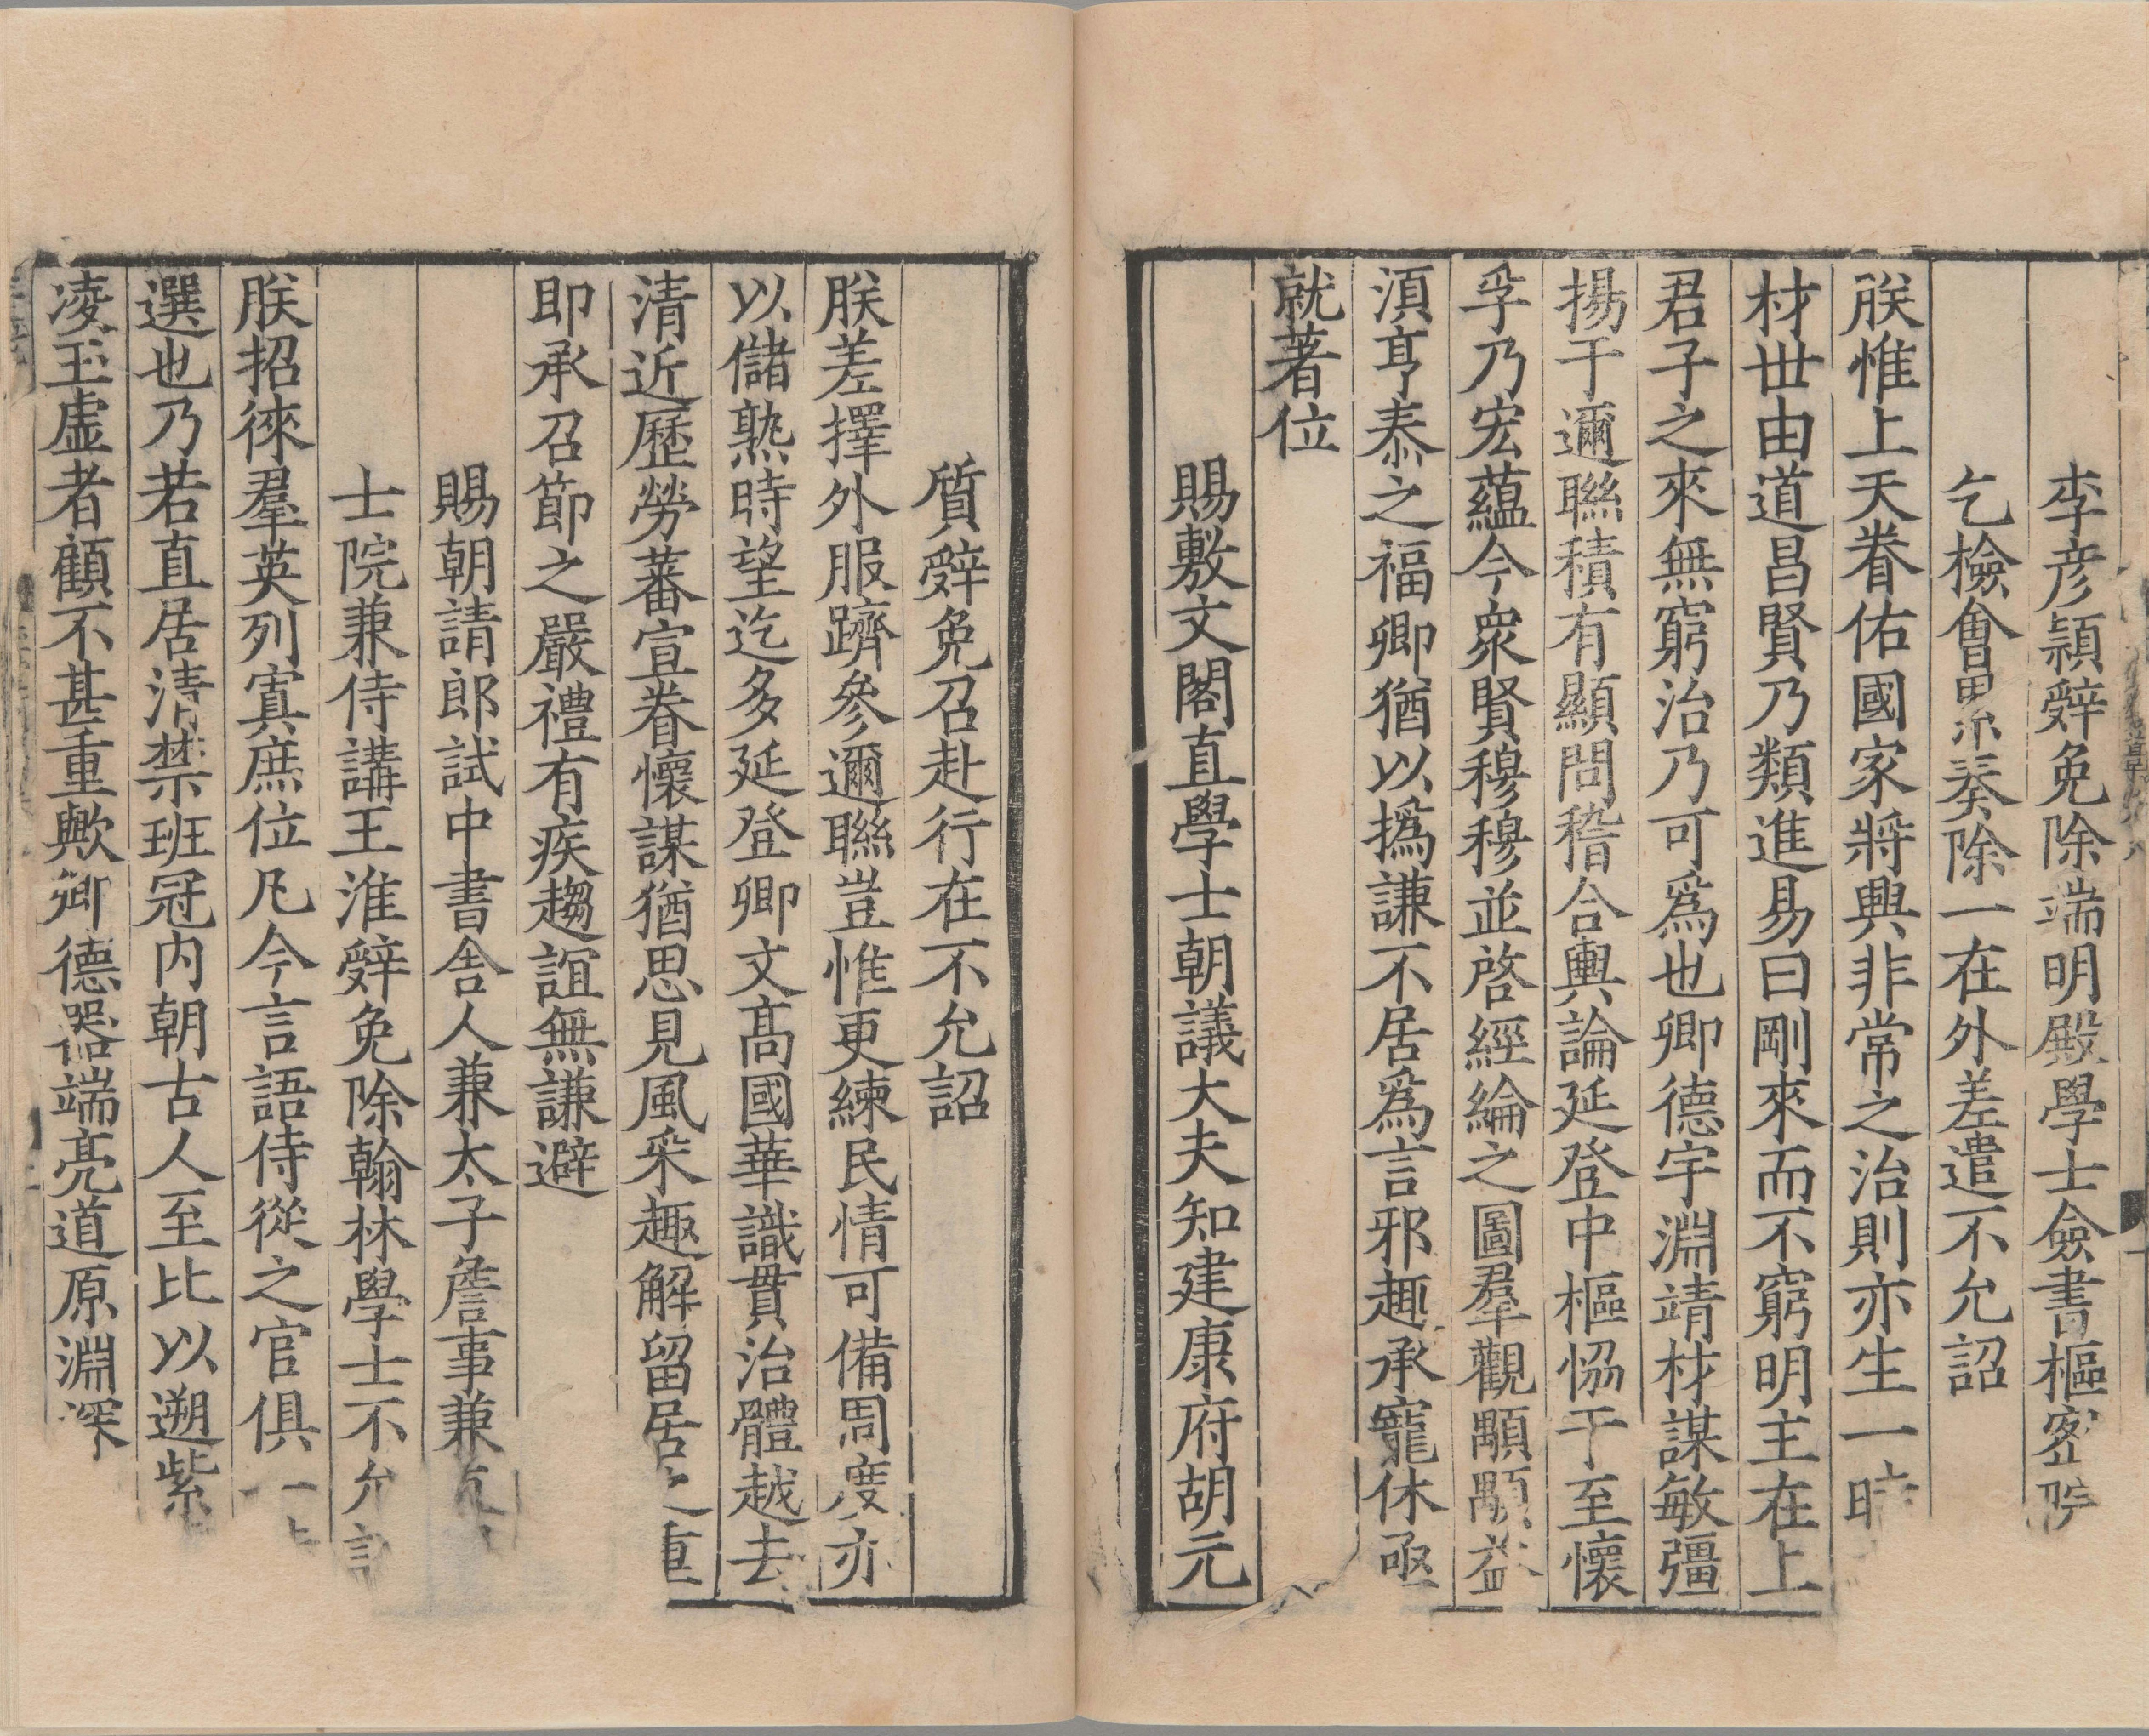 李彦穎辭免除端明殿學士僉書樞密院
乞檢會累奏除一在外差遣不允詔
朕惟上天眷佑國家將興非常之治則亦生一時
材世由道昌賢乃類進易曰剛來而不窮明主在上
君子之來無窮治乃可爲也卿德宇淵靖材謀敏彊
揚于邇聯積有顯問稽合輿論延登中樞協于至懷
孚乃宏蘊今衆賢穆穆並啓經綸之圖羣觀顒顒益
湏亨泰之福卿猶以撝謙不居爲言邪趣承寵休亟
就著位
賜敷文閣直學士朝議大夫知建康府胡元
質辭免召赴行在不允詔
朕差擇外服躋參邇聯豈惟更練民情可備周度亦
以儲熟時望迄多延登卿文髙國華識貫治體越去
清近歷勞蕃宣眷懷謀猶思見風采趣解留居之重
即承召節之嚴禮有疾趨誼無謙避
賜朝請郎試中書舎人兼太子詹事兼
士院兼侍講王淮辭免除翰林學士不允詔
朕招徠羣英列寘庶位凡今言語侍從之官俱一
選也乃若直居清禁班冠内朝古人至比以遡紫
凌玉虚者顧不甚重歟卿德器端亮道原淵深